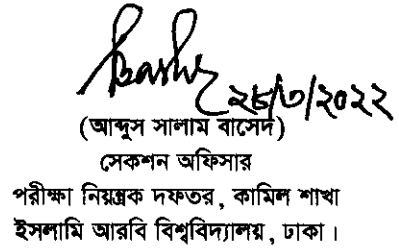 ২৮/৩/২০২২
(আব্দুস সালাম বাসেদ)
সেকশন অফিসার
পরীক্ষা নিয়ন্ত্রক দফতর, কামিল শাখা
ইসলামি আরবি বিশ্ববিদ্যালয়, ঢাকা।